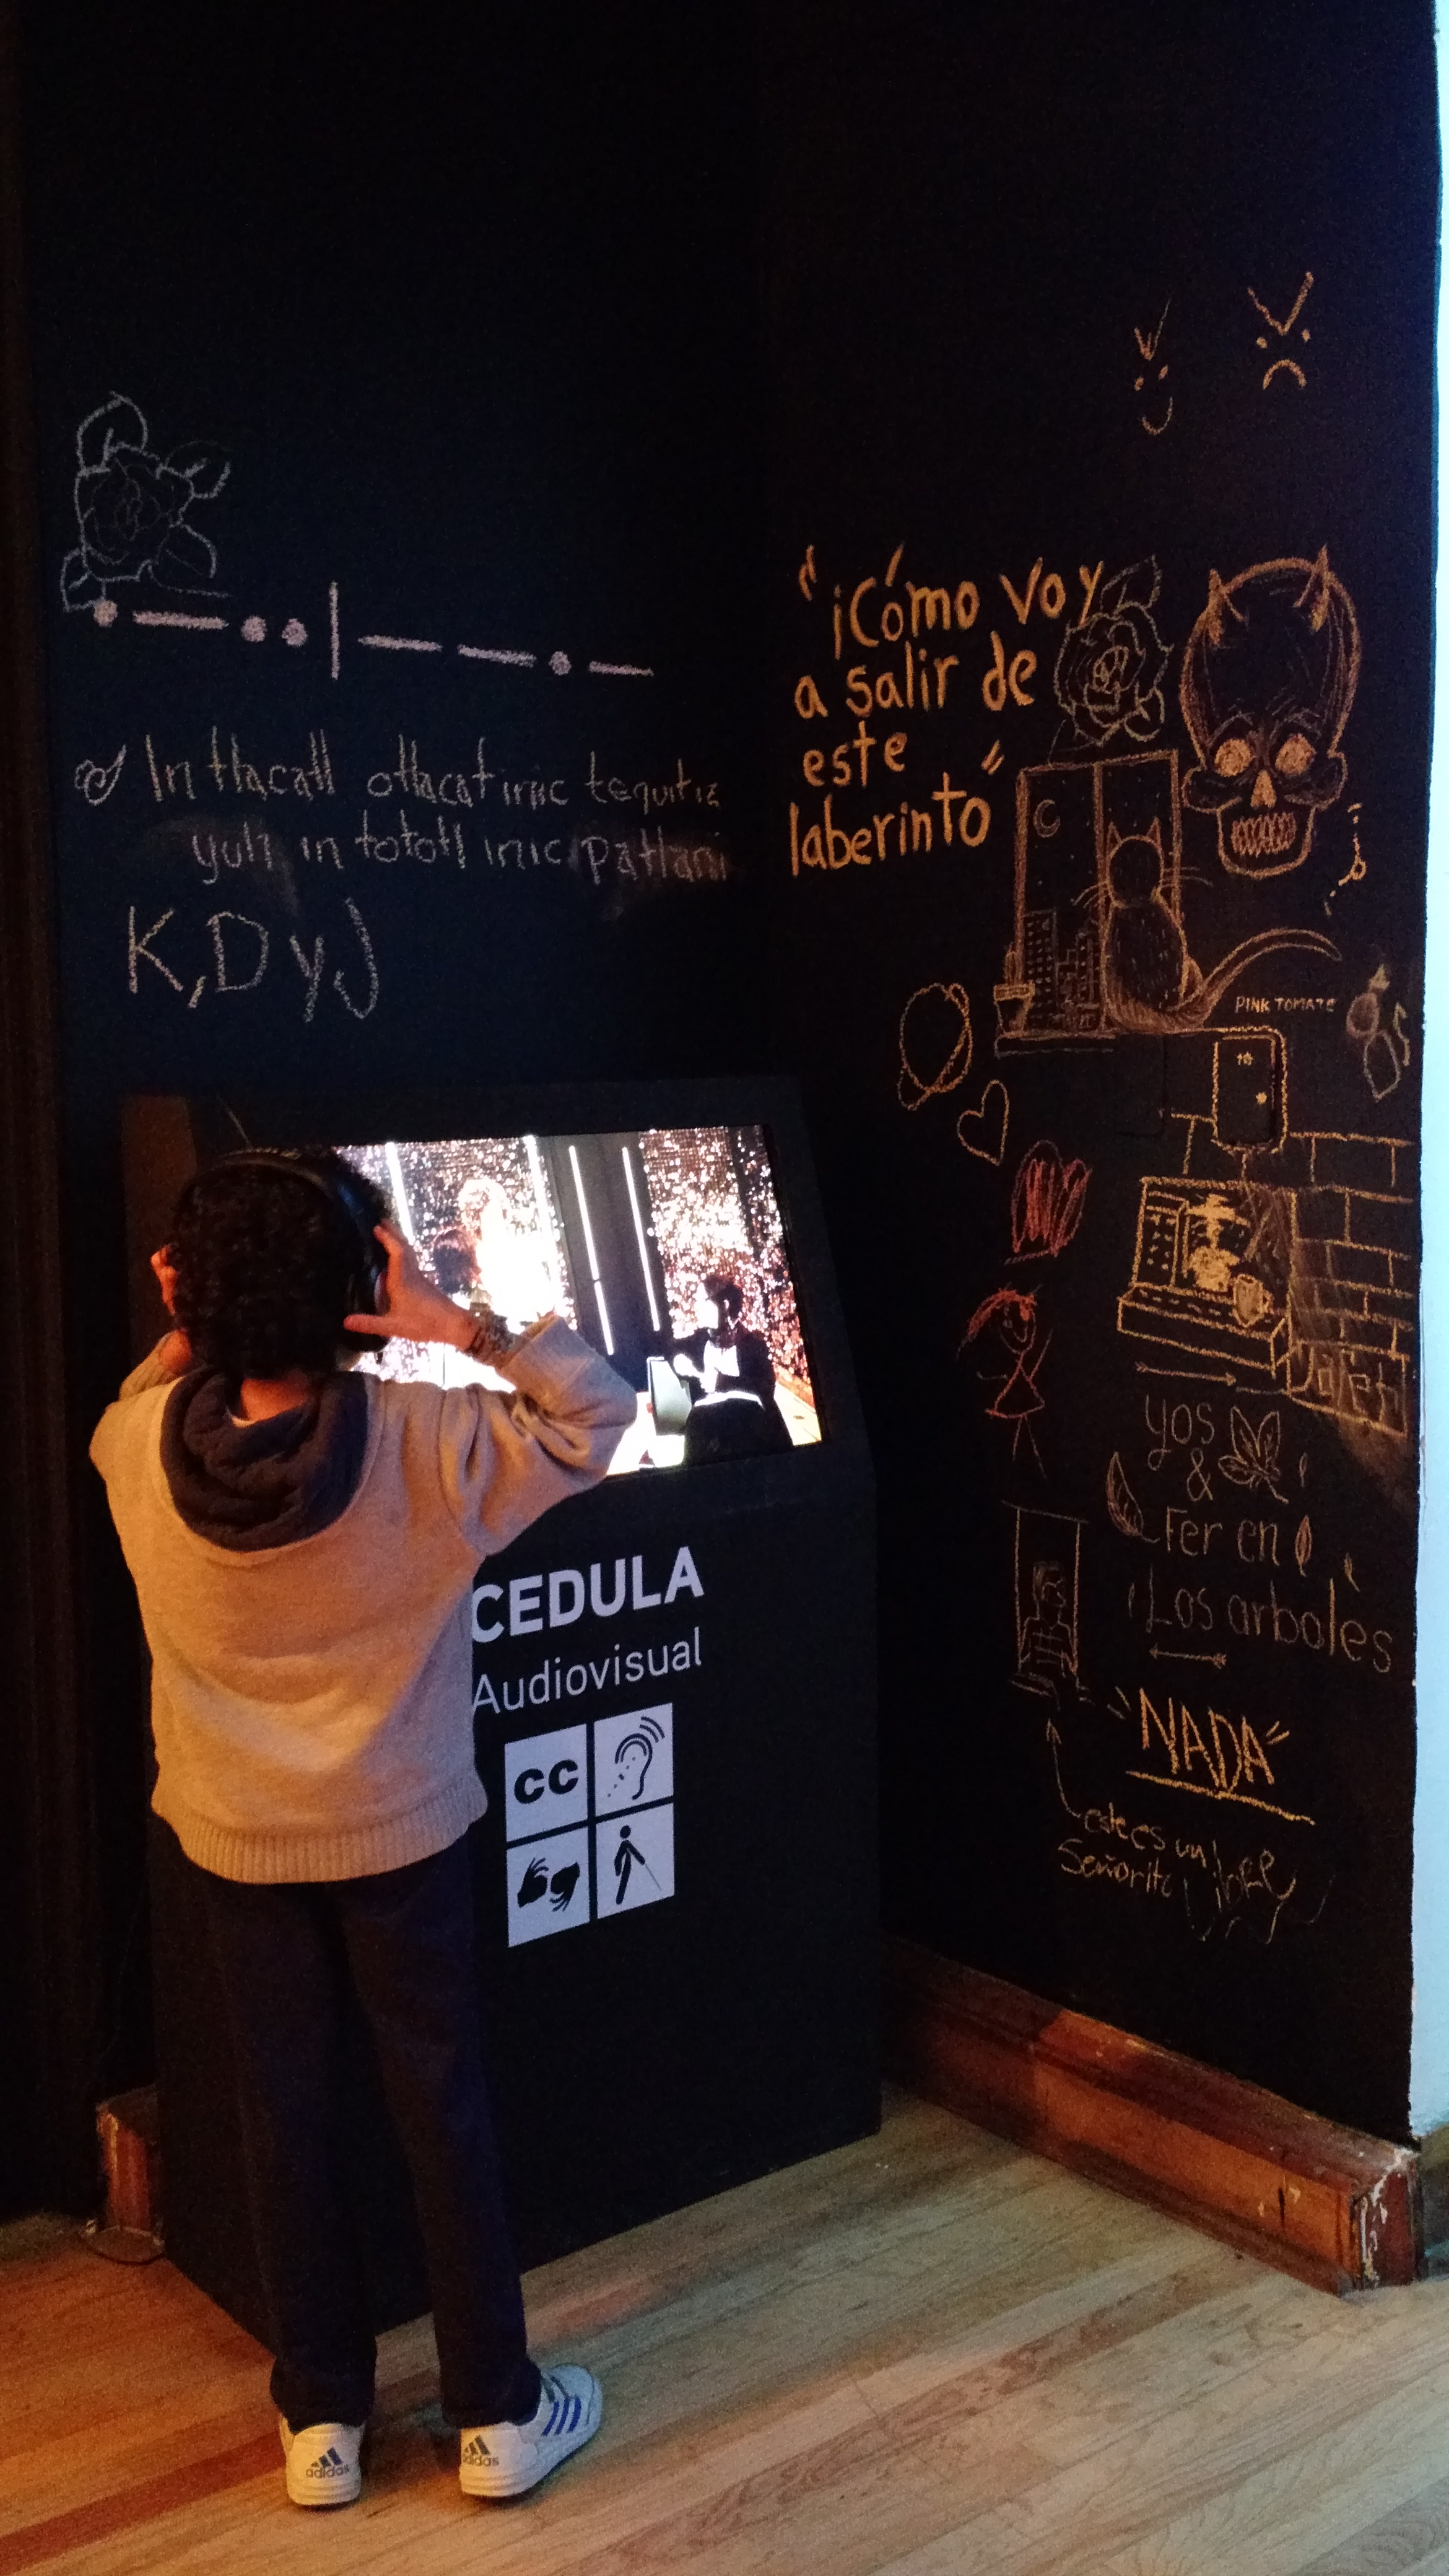 In tlacatl otlacat inic tequitiz
yuh in tototl inic patlani
K, D y J
"¡Cómo voy
a salir de
este
laberinto"
PINK TOMATE
yos
&
Fer en
Los arboles
"NADA"
este es un
Señorito
CEDULA
Audiovisual
CC
adidas
adidas